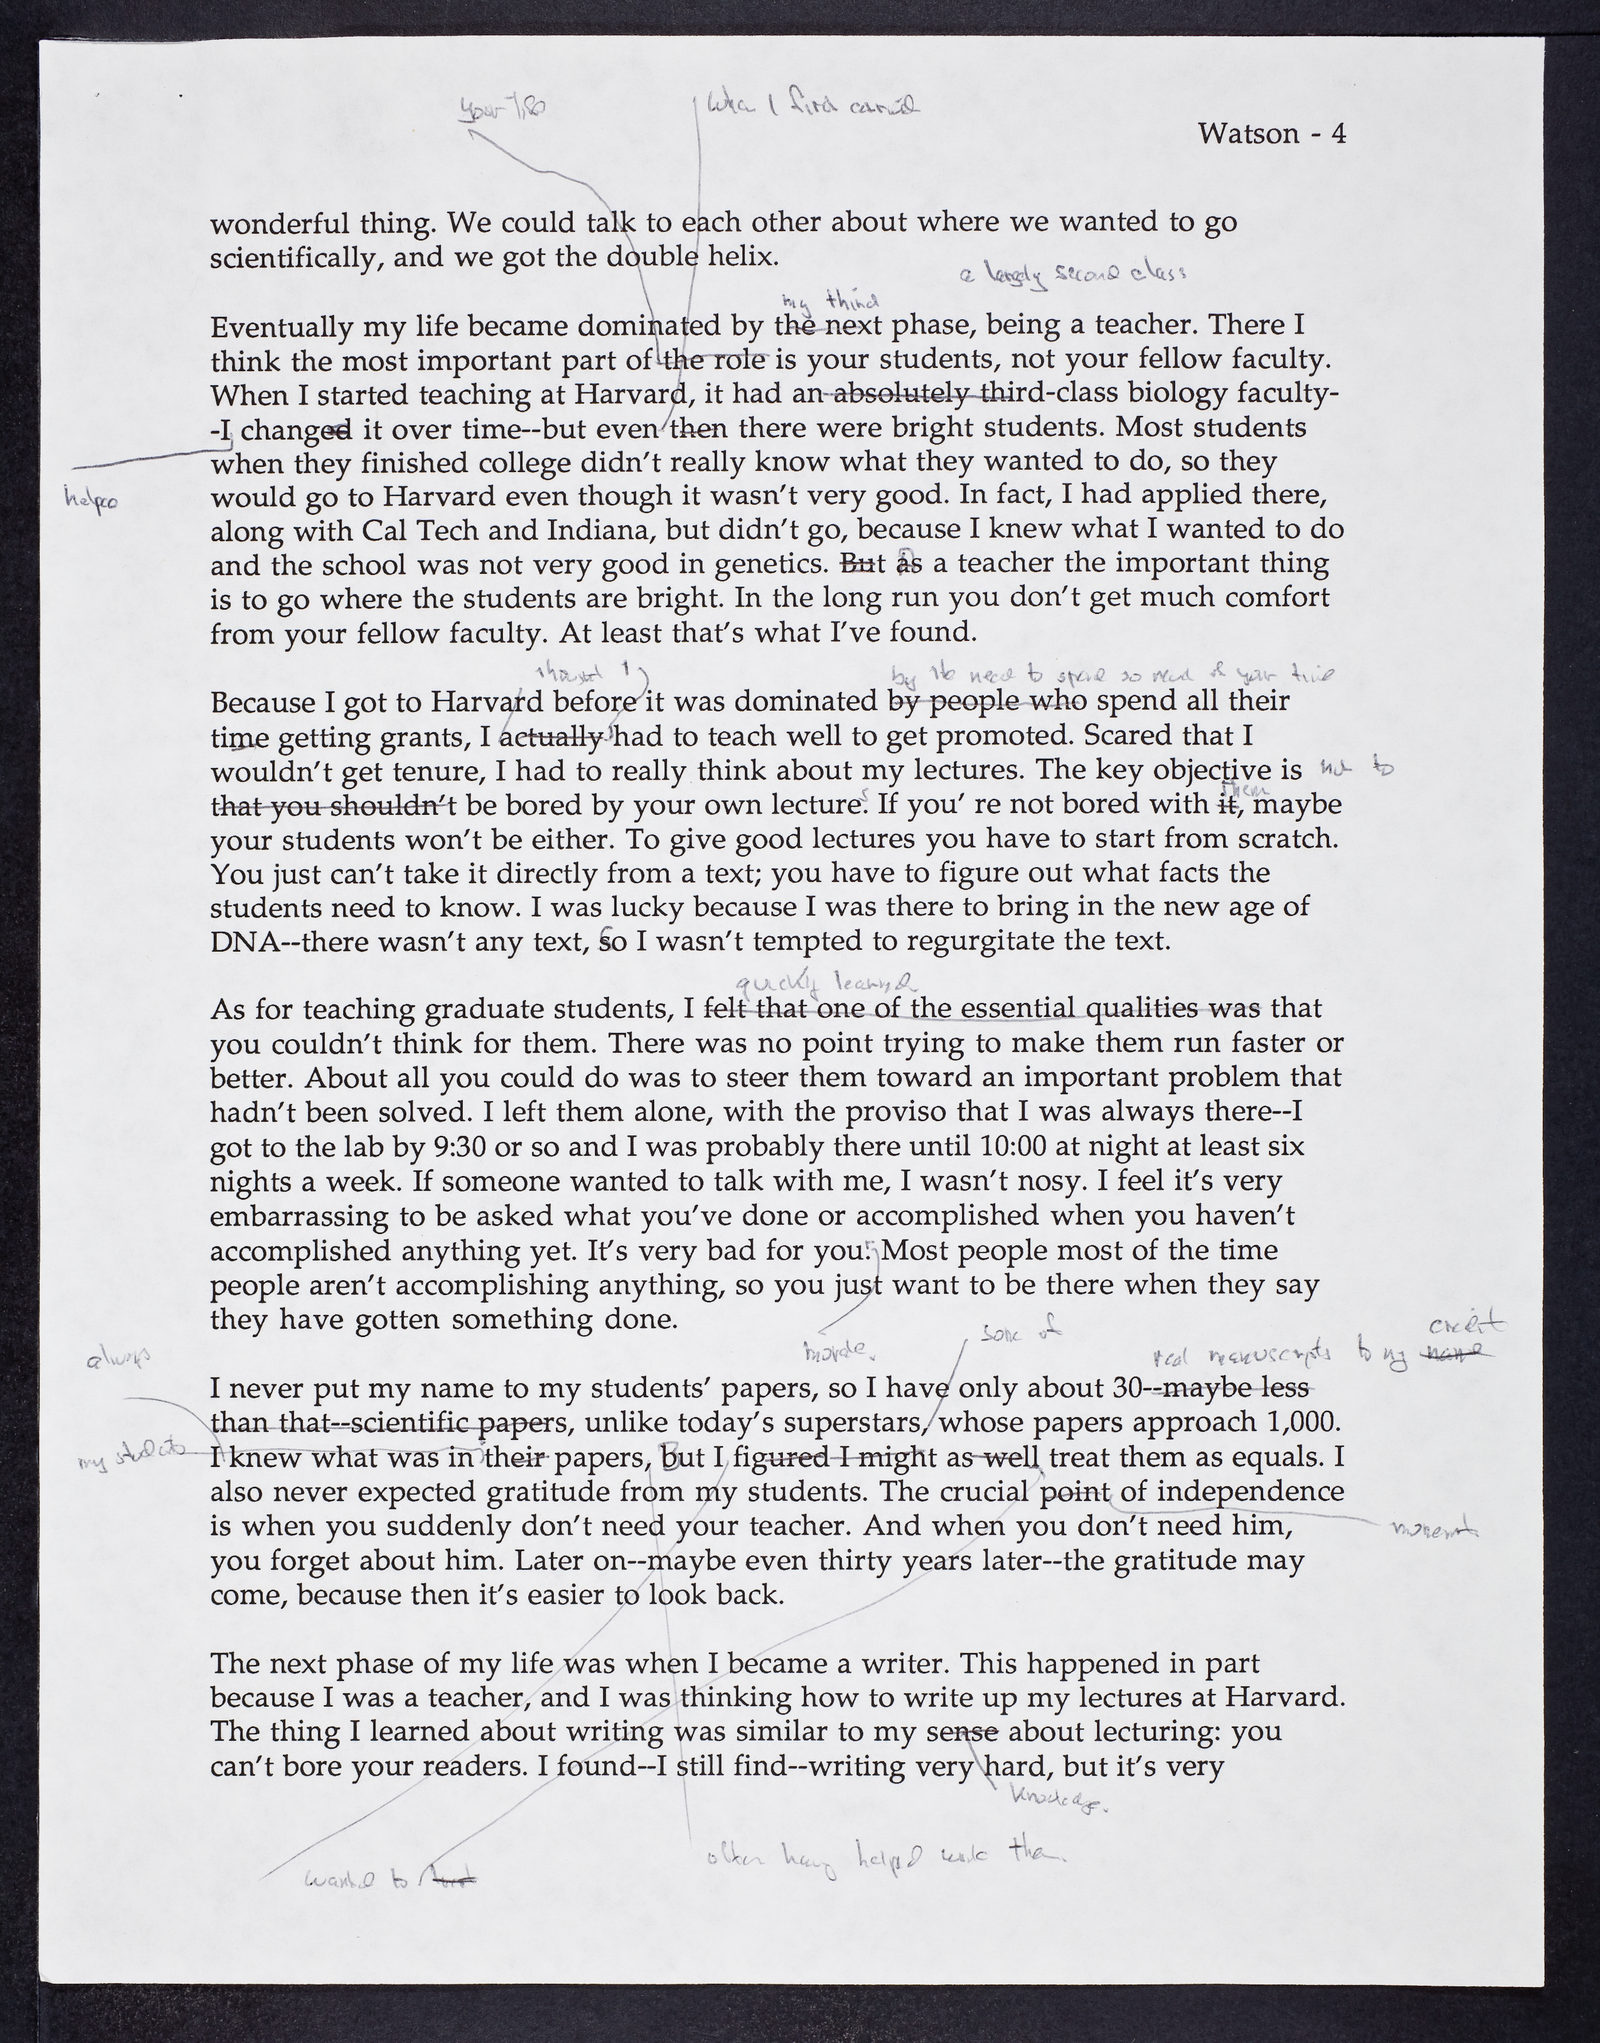 when I first came
Watson - 4
wonderful thing. We could talk to each other about where we wanted to go
scientifically, and we got the double helix.
a largely second class
my third
Eventually my life became dominated by the next phase, being a teacher. There I
think the most important part of the role is your students, not your fellow faculty.
When I started teaching at Harvard, it had an absolutely third-class biology faculty-
-I changed it over time--but even then there were bright students. Most students
when they finished college didn't really know what they wanted to do, so they
helped
would go to Harvard even though it wasn't very good. In fact, I had applied there,
along with Cal Tech and Indiana, but didn't go, because I knew what I wanted to do
and the school was not very good in genetics. But as a teacher the important thing
is to go where the students are bright. In the long run you don't get much comfort
from your fellow faculty. At least that's what I've found.
by the need to spend so much of your time
Because I got to Harvard before it was dominated by people who spend all their
time getting grants, I actually had to teach well to get promoted. Scared that I
wouldn't get tenure, I had to really think about my lectures. The key objective is not to
them
that you shouldn't be bored by your own lectures. If you' re not bored with it, maybe
your students won't be either. To give good lectures you have to start from scratch.
You just can't take it directly from a text; you have to figure out what facts the
students need to know. I was lucky because I was there to bring in the new age of
DNA--there wasn't any text, so I wasn't tempted to regurgitate the text.
quickly learned
As for teaching graduate students, I felt that one of the essential qualities was that
you couldn't think for them. There was no point trying to make them run faster or
better. About all you could do was to steer them toward an important problem that
hadn't been solved. I left them alone, with the proviso that I was always there--I
got to the lab by 9:30 or so and I was probably there until 10:00 at night at least six
nights a week. If someone wanted to talk with me, I wasn't nosy. I feel it's very
embarrassing to be asked what you've done or accomplished when you haven't
accomplished anything yet. It's very bad for your Most people most of the time
people aren't accomplishing anything, so you just want to be there when they say
they have gotten something done.
morale.
some of
credit
always
real manuscripts to my name
I never put my name to my students' papers, so I have only about 30--maybe less
than that--scientific papers, unlike today's superstars, whose papers approach 1,000.
my students
I knew what was in their papers, But I figured I might as well treat them as equals. I
also never expected gratitude from my students. The crucial point of independence
is when you suddenly don't need your teacher. And when you don't need him,
moment
you forget about him. Later on--maybe even thirty years later--the gratitude may
come, because then it's easier to look back.
The next phase of my life was when I became a writer. This happened in part
because I was a teacher, and I was thinking how to write up my lectures at Harvard.
The thing I learned about writing was similar to my sense about lecturing: you
can't bore your readers. I found--I still find--writing very hard, but it's very
knowledge.
often having helped write them.
wanted to